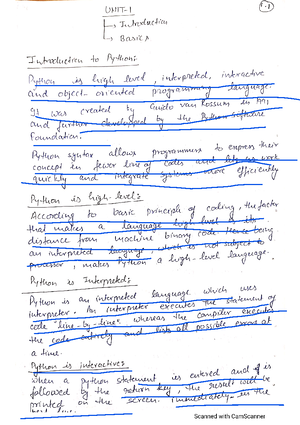 UNIT-1
→ Introduction
→ Basics
Introduction to Python:
Python is high level, interpreted, interactive
and object-oriented programming language.
It was created by Guido van Rossum in 1991
and further developed by the Python Software
Foundation.
Python syntax allows programmers to express their
concept in fewer line of codes and lets us work
quickly and integrate systems more efficiently
Python is high-level:
According to basic principle of coding, the factor
that makes a language high level is its
distance from machine binary code. Hence being
an interpreted language which is not subject to
processor, makes Python a high-level language.
Python is Interpreted:
Python is an interpreted language which uses
interpreter. An interpreter executes the statement of
code "line-by-line" whereas the compiler executes
the code entirely and lists all possible errors at
a time.
Python is interactive:
when a python statement is entered and if is
followed by the return key, the result will be
printed on the screen, immediately, in the
Scanned with CamScanner